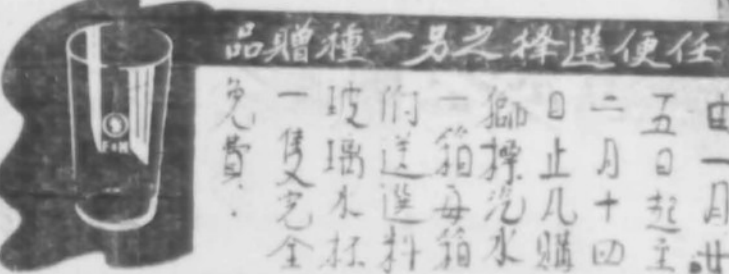 任便選擇之另一種贈品
由一月廿
五日起至
二月十四
日止凡購
獅標汽水
一箱每箱
附送選料
玻璃水杯
一隻完全
免費．
F&N